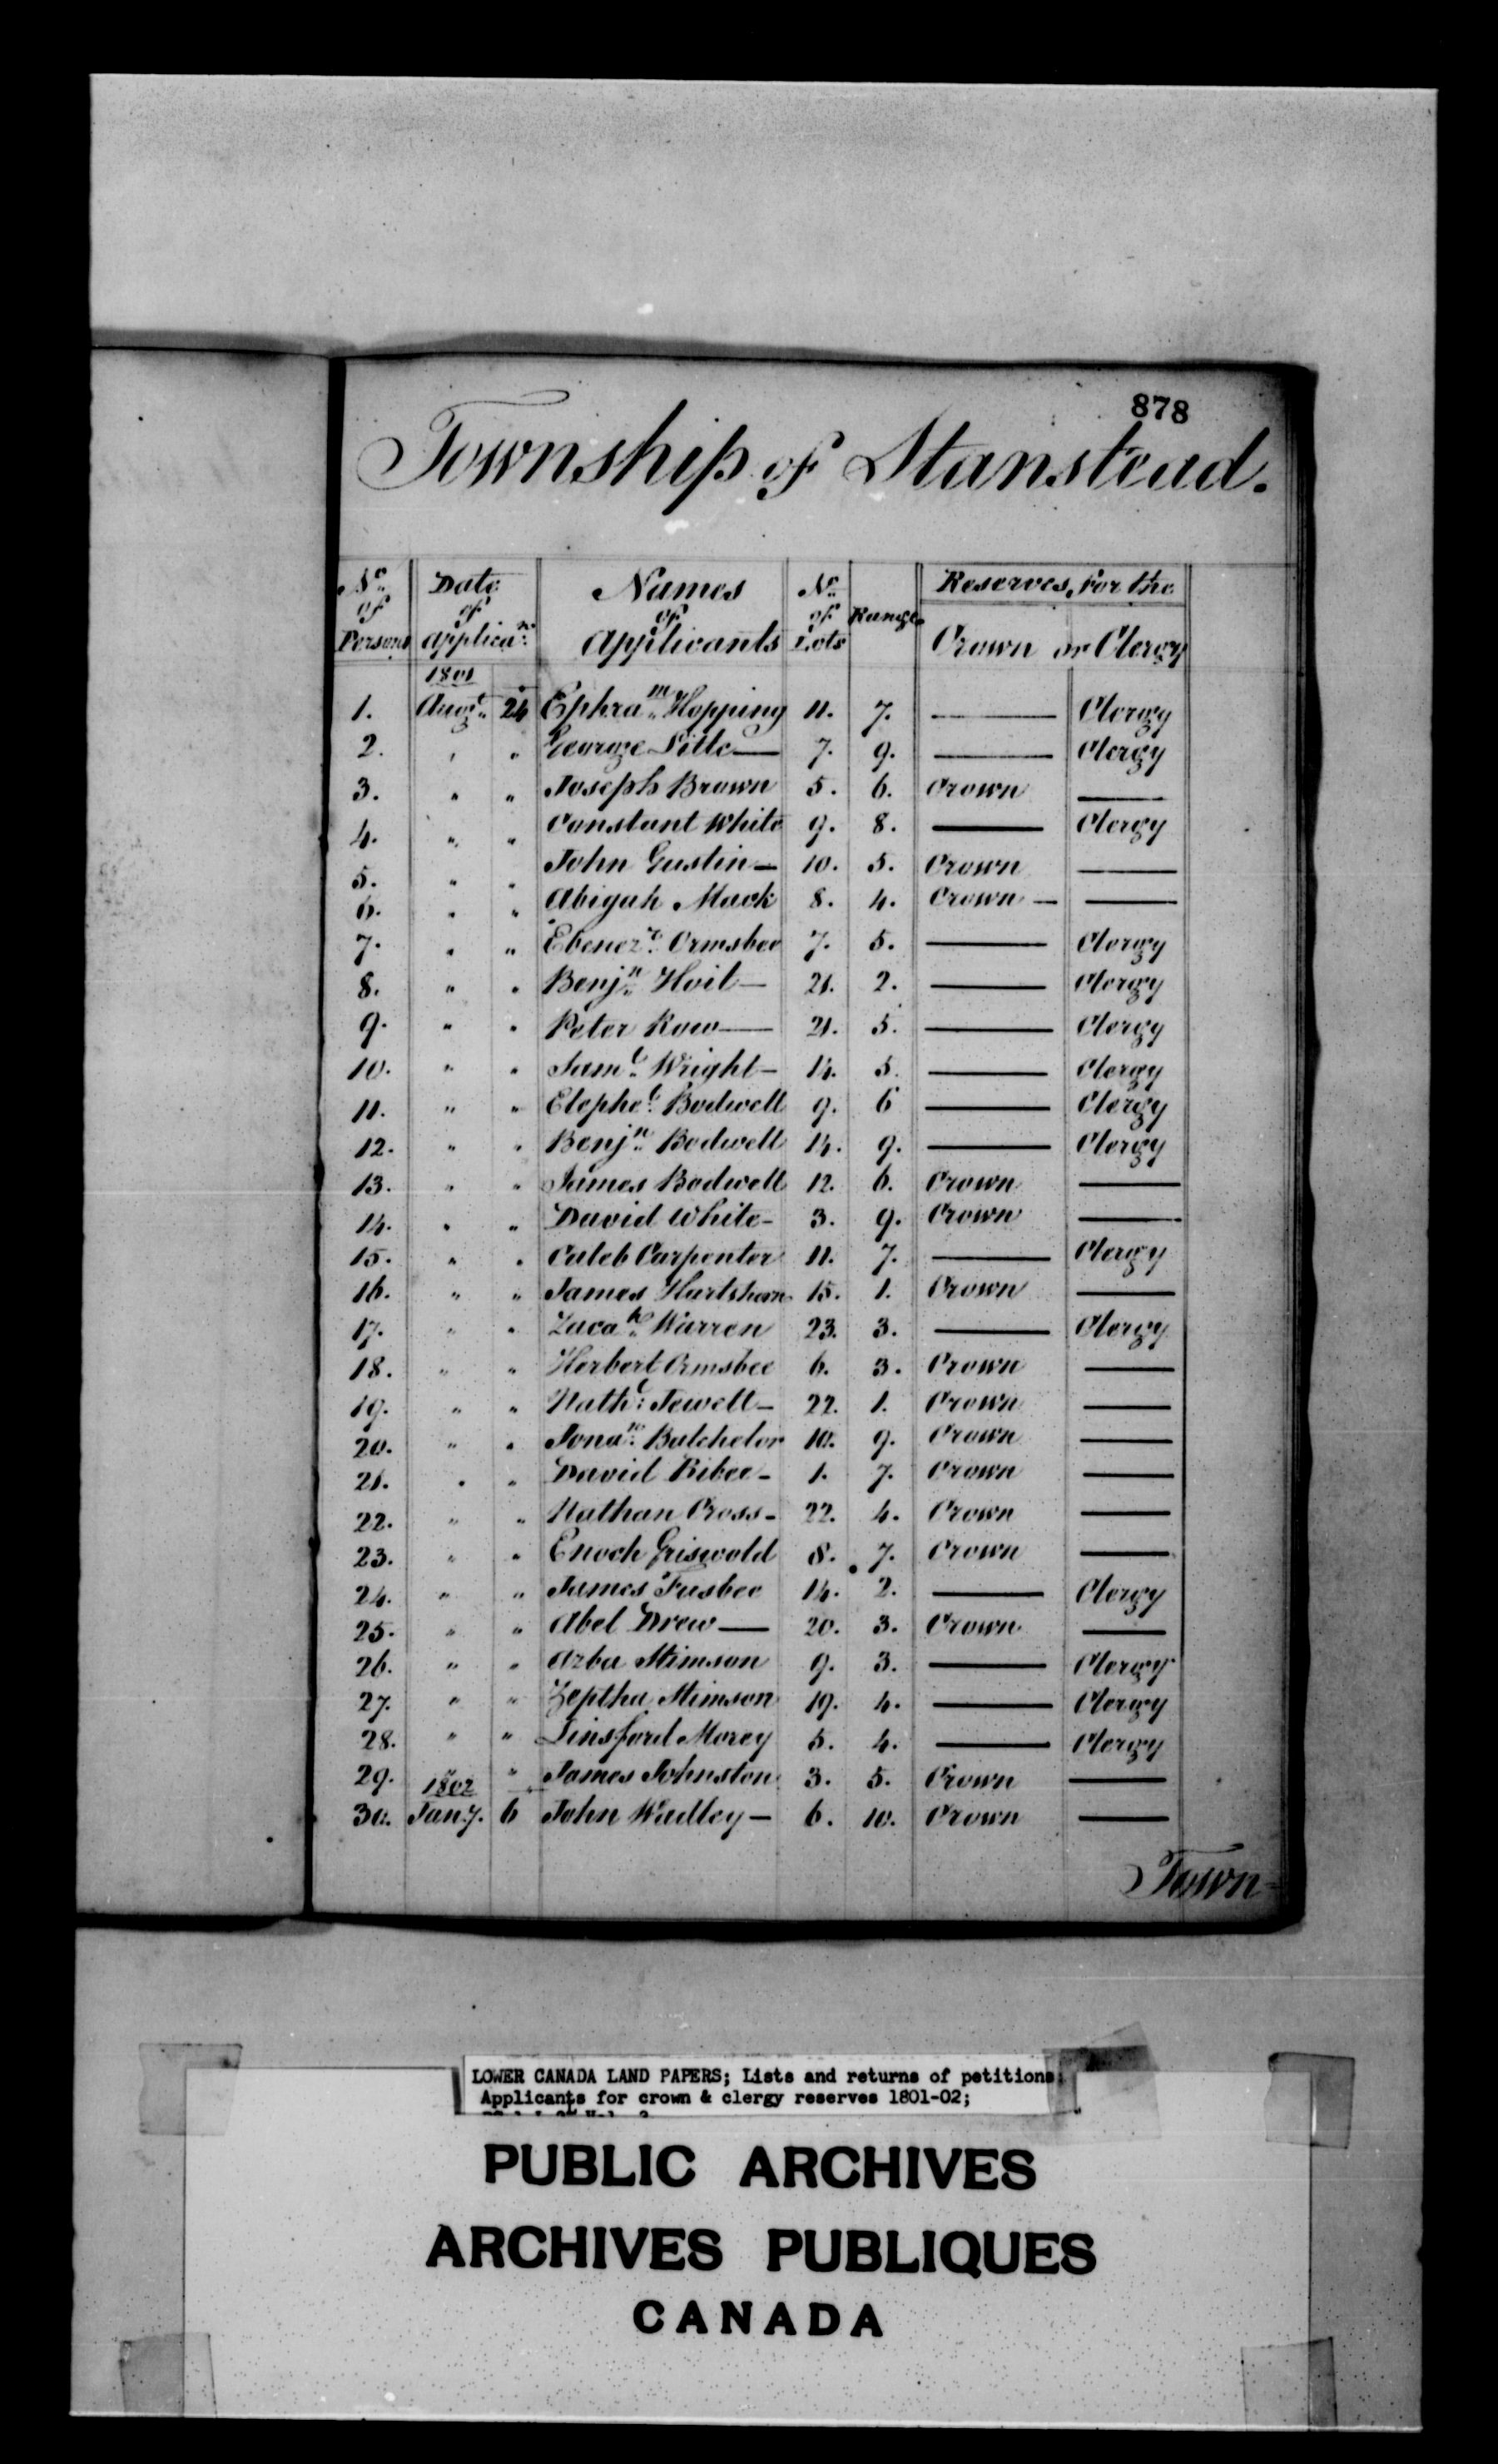 878
Township of Stanstead.
No. of Persons | Date of applican. | Names of Applicants | No. of Lots | Range | Reserves, for the Crown or Clergy
1801
1. Augt. 24 Ephram. Hopping 11. 7. — Clergy
2. " " George Little — 7. 9. — Clergy
3. " " Joseph Brown 5. 6. Crown —
4. " " Constant White 9. 8. — Clergy
5. " " John Gustin — 10. 5. Crown —
6. " " Abigah Mack 8. 4. Crown — —
7. " " Ebenezr. Ormsbee 7. 5. — Clergy
8. " " Benjn. Hoit — 21. 2. — Clergy
9. " " Peter Row — 21. 5. — Clergy
10. " " Saml. Wright — 14. 5. — Clergy
11. " " Elephel. Bodwell 9. 6 — Clergy
12. " " Benjn. Bodwell 14. 9. — Clergy
13. " " James Bodwell 12. 6. Crown —
14. " " David White - 3. 9. Crown —
15. " " Caleb Carpenter 11. 7. — Clergy
16. " " James Hartshorn 15. 1. Crown —
17. " " Zacah. Warren 23. 3. — Clergy
18. " " Herbert Ormsbee 6. 3. Crown —
19. " " Nathl: Jewell - 22. 1. Crown —
20. " " Jonan. Batchelor 10. 9. Crown —
21. " " David Bibee - 1. 7. Crown —
22. " " Nathan Cross - 22. 4. Crown —
23. " " Enoch Griswold 8. 7. Crown —
24. " " James Fusbee 14. 2. — Clergy
25. " " Abel Drew — 20. 3. Crown —
26. " " Azba Stimson 9. 3. — Clergy
27. " " Zeptha Stimson 19. 4. — Clergy
28. " " Linsford Morey 5. 4. — Clergy
29. " " James Johnston 3. 5. Crown —
1802
30. Jany. 6 John Wadley — 6. 10. Crown —
Town-
LOWER CANADA LAND PAPERS; Lists and returns of petitions;
Applicants for crown & clergy reserves 1801-02;
PUBLIC ARCHIVES
ARCHIVES PUBLIQUES
CANADA